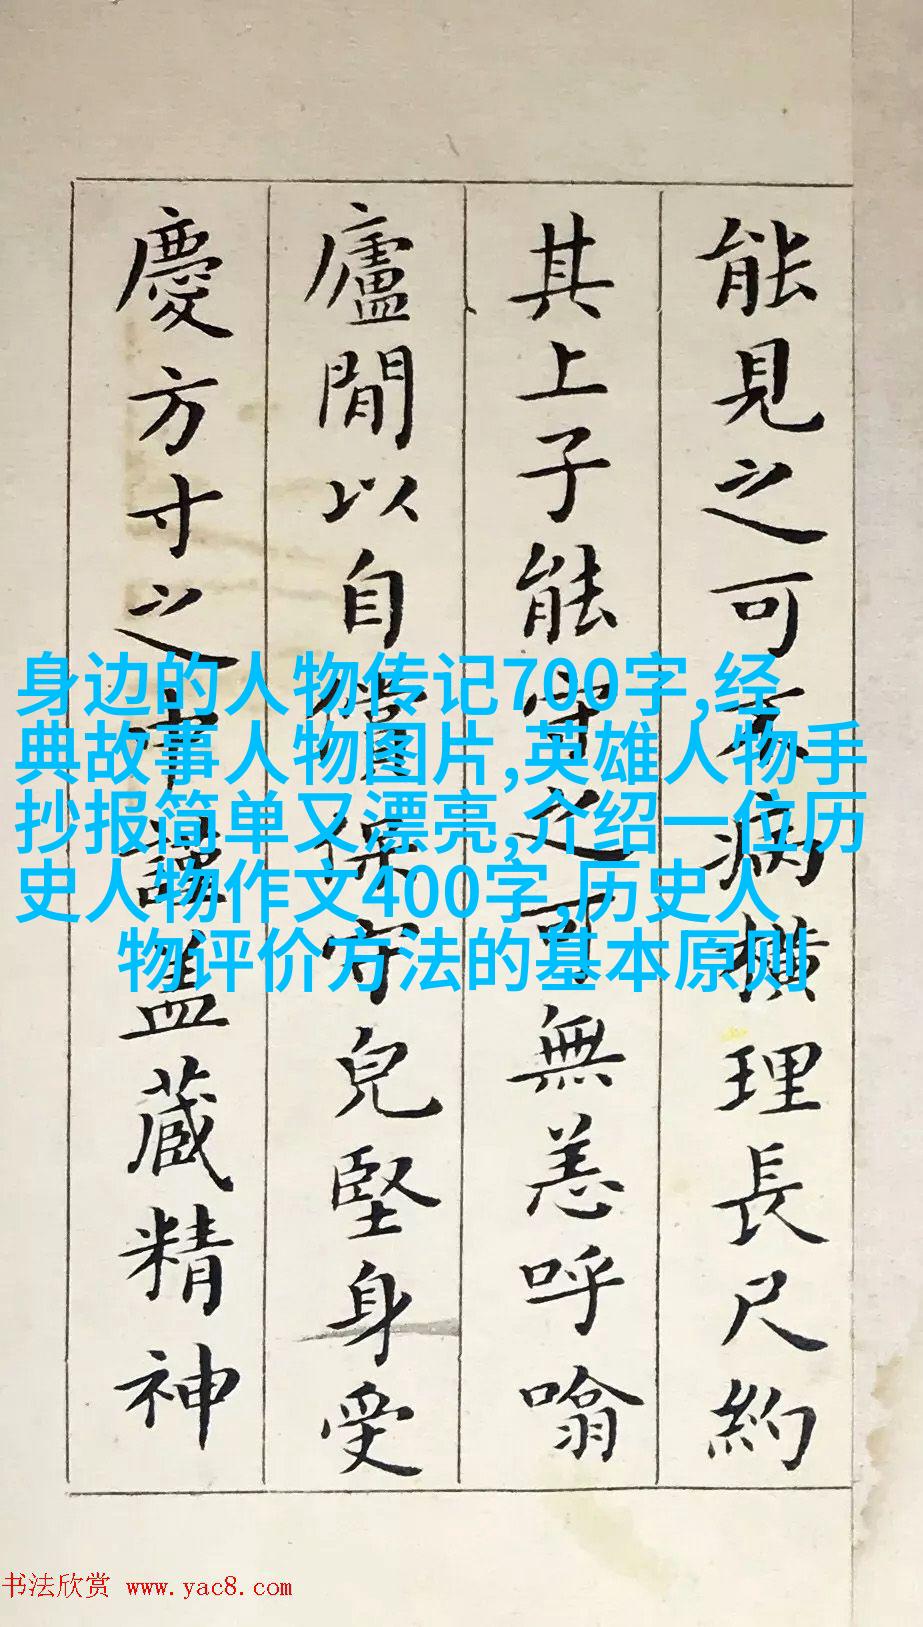 能見之可不病橫理長尺約
其上子能守之可無恙呼噏
廬閒以自償保守兒堅身受
慶方寸之中謹蓋藏精神
身边的人物传记700字,经
典故事人物图片,英雄人物手
抄报简单又漂亮,介绍一位历
史人物作文400字,历史人
物评价方法的基本原则
书法欣赏 www.yac8.com